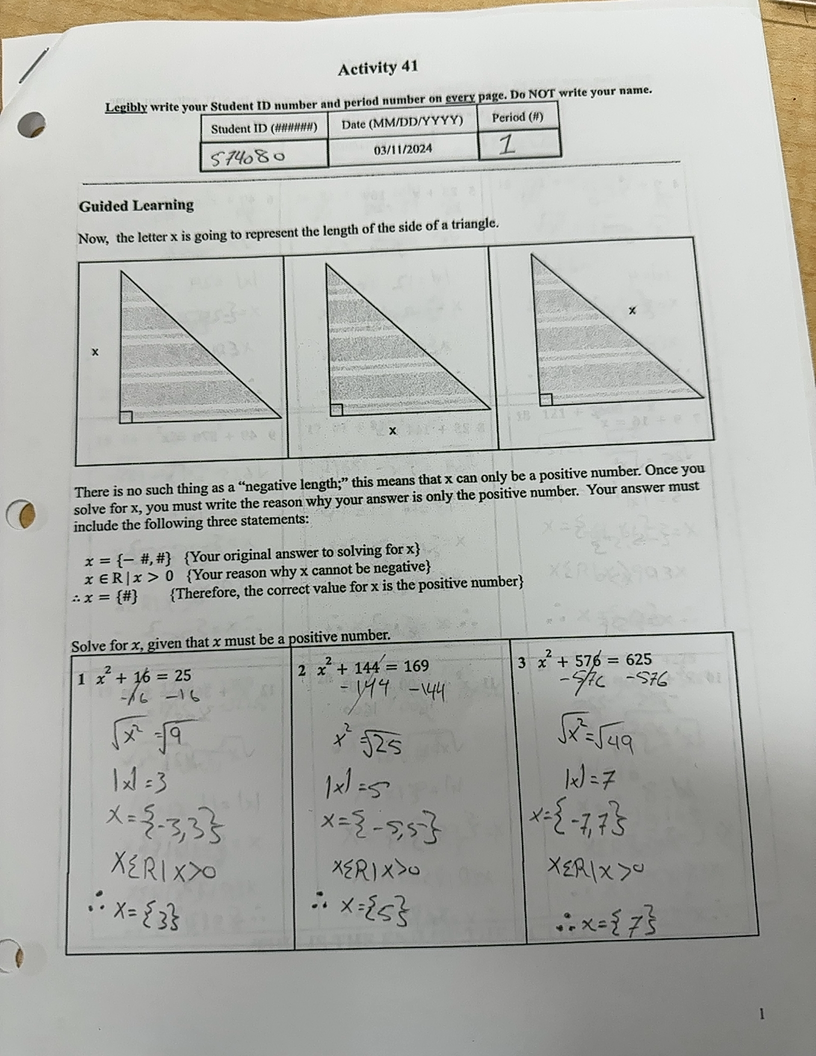 Activity 41
Legibly write your Student ID number and period number on every page. Do NOT write your name.
Student ID (######) Date (MM/DD/YYYY) Period (#)
574080 03/11/2024 1
Guided Learning
Now, the letter x is going to represent the length of the side of a triangle.
x
x
x
There is no such thing as a “negative length;” this means that x can only be a positive number. Once you
solve for x, you must write the reason why your answer is only the positive number. Your answer must
include the following three statements:
x = {− #, #} {Your original answer to solving for x}
x ∈ R | x > 0 {Your reason why x cannot be negative}
∴ x = {#} {Therefore, the correct value for x is the positive number}
Solve for x, given that x must be a positive number.
1 x² + 16 = 25
-16 -16
√x² = √9
|x| = 3
x = {-3, 3}
x ∈ R | x > 0
∴ x = {3}
2 x² + 144 = 169
-144 -144
x² = √25
|x| = 5
x = {-5, 5}
x ∈ R | x > 0
∴ x = {5}
3 x² + 576 = 625
-576 -576
√x² = √49
|x| = 7
x = {-7, 7}
x ∈ R | x > 0
∴ x = {7}
1